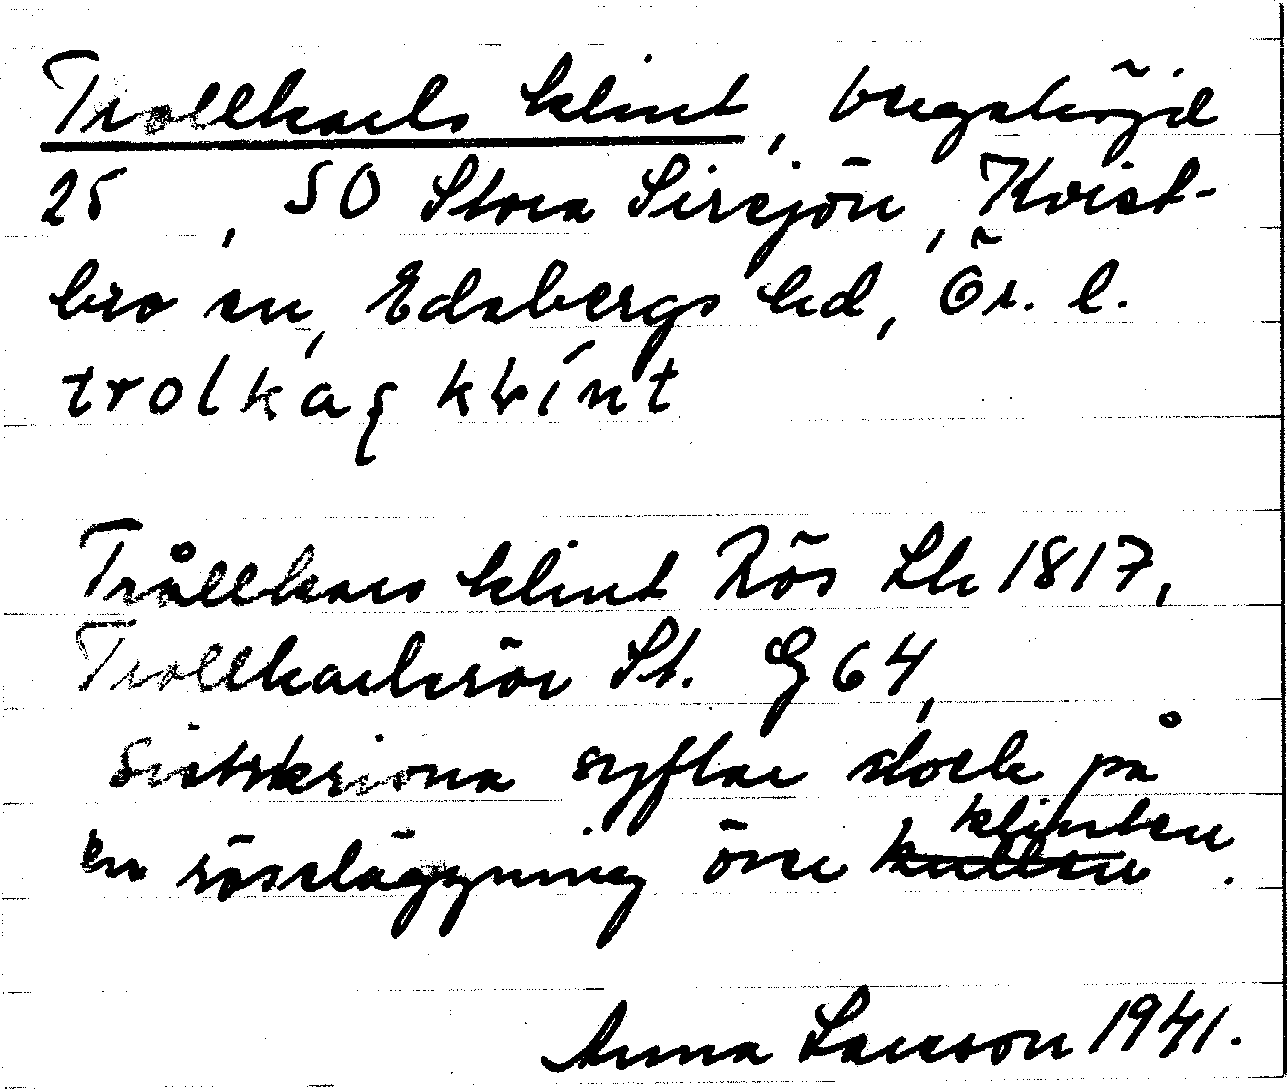 Trollkarls klint, bergshöjd
25 , SO Stora Sirsjön, Kvist-
bro sn, Edsbergs hd, Ör. l.
trolkaʂ klínt
Trållkars klint Rös Lh 1817,
Trollkarlsrör St. G 64,
Sistskrivna syftar dock på
en röseläggning över kullen klinten.
Anna Larsson 1941.